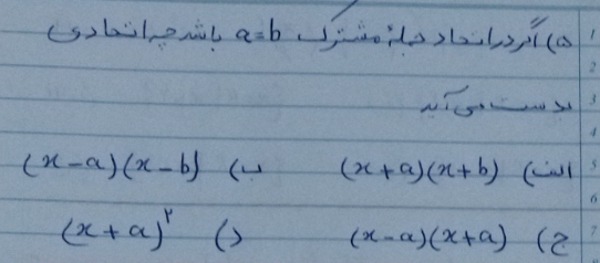 ۵) اگر در اتحاد جملهٔ مشترک a=b باشد چه اتحادی
بدست می آید
الف) (x+a)(x+b) ب) (x-a)(x-b)
ج) (x-a)(x+a) د) (x+a)^۲
1
2
3
4
5
6
7